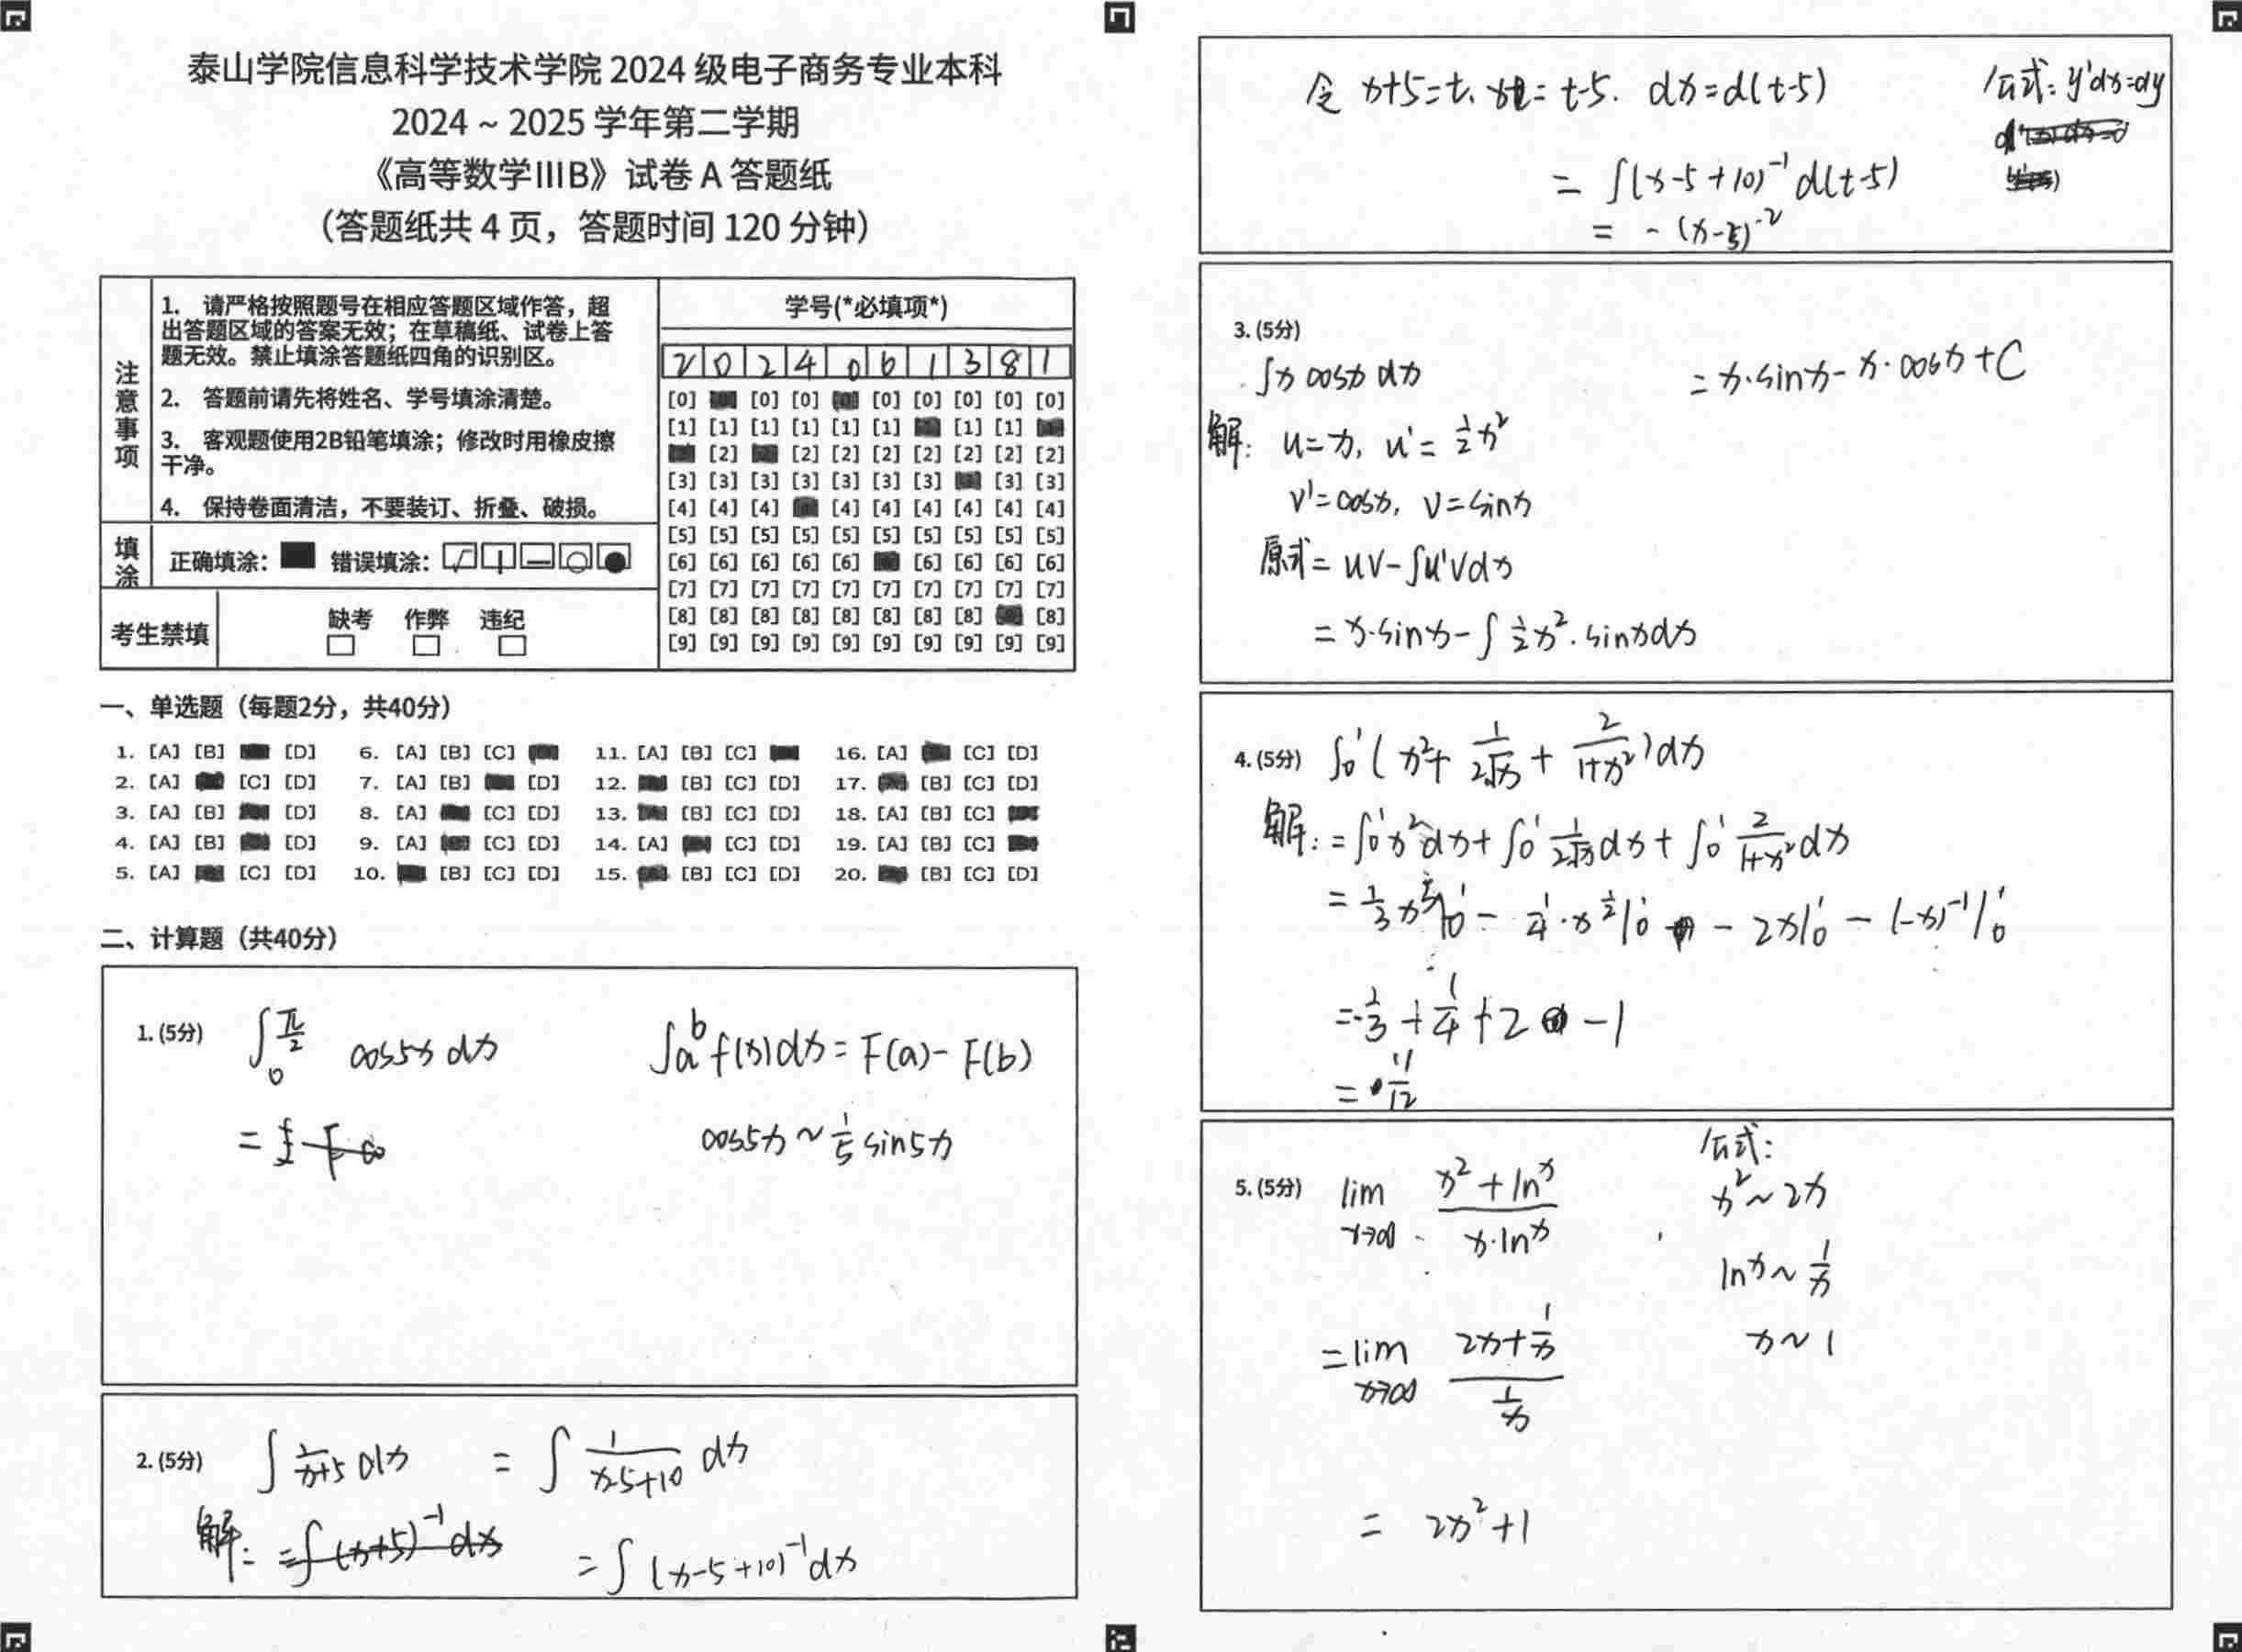 泰山学院信息科学技术学院 2024 级电子商务专业本科
2024 ~ 2025 学年第二学期
《高等数学IIIB》试卷 A 答题纸
（答题纸共 4 页，答题时间 120 分钟）
注意事项
1. 请严格按照题号在相应答题区域作答，超
出答题区域的答案无效；在草稿纸、试卷上答
题无效。禁止填涂答题纸四角的识别区。
2. 答题前请先将姓名、学号填涂清楚。
3. 客观题使用2B铅笔填涂；修改时用橡皮擦
干净。
4. 保持卷面清洁，不要装订、折叠、破损。
填涂 正确填涂： 错误填涂：
考生禁填 缺考 作弊 违纪
学号(*必填项*)
2 0 2 4 0 6 1 3 8 1
[0] [0] [0] [0] [0] [0] [0] [0]
[1] [1] [1] [1] [1] [1] [1] [1]
[2] [2] [2] [2] [2] [2] [2] [2]
[3] [3] [3] [3] [3] [3] [3] [3] [3]
[4] [4] [4] [4] [4] [4] [4] [4] [4]
[5] [5] [5] [5] [5] [5] [5] [5] [5] [5]
[6] [6] [6] [6] [6] [6] [6] [6] [6]
[7] [7] [7] [7] [7] [7] [7] [7] [7] [7]
[8] [8] [8] [8] [8] [8] [8] [8] [8]
[9] [9] [9] [9] [9] [9] [9] [9] [9] [9]
一、单选题（每题2分，共40分）
1. [A] [B] [D] 6. [A] [B] [C] 11. [A] [B] [C] 16. [A] [C] [D]
2. [A] [C] [D] 7. [A] [B] [D] 12. [B] [C] [D] 17. [B] [C] [D]
3. [A] [B] [D] 8. [A] [C] [D] 13. [B] [C] [D] 18. [A] [B] [C]
4. [A] [B] [D] 9. [A] [C] [D] 14. [A] [C] [D] 19. [A] [B] [C]
5. [A] [C] [D] 10. [B] [C] [D] 15. [B] [C] [D] 20. [B] [C] [D]
二、计算题（共40分）
1. (5分) ∫₀^(π/2) cos5x dx
∫a^b f(x)dx = F(a) - F(b)
cos5x ~ 1/5 sin5x
2. (5分) ∫ 1/(x+5) dx = ∫ 1/(x-5+10) dx
解: =∫(x+5)⁻¹ dx
= ∫(x-5+10)⁻¹ dx
令 x+5=t, x= t-5. dx=d(t-5)
公式: y'dx=dy
= ∫(x-5+10)⁻¹ d(t-5)
= -(x-5)⁻²
3. (5分)
∫x cosx dx
解: u=x, u'= 1/2 x²
v'=cosx, v=sinx
原式= uv-∫u'vdx
= x·sinx-∫ 1/2 x²·sinxdx
= x·sinx- x·cosx+C
4. (5分) ∫₀¹ (x²+ 1/(2√x) + 2/(1+x²))dx
解: =∫₀¹ x²dx+∫₀¹ 1/(2√x) dx+∫₀¹ 2/(1+x²) dx
= 1/3 x³|₀¹ - 1/4·x^(1/2)|₀¹ - 2x|₀¹ - (-x)⁻¹|₀¹
= 1/3 + 1/4 + 2 - 1
= 11/12
5. (5分) lim x→∞ (x²+ln^x)/(x·ln^x)
=lim x→∞ (2x+1/x)/(1/x)
= 2x²+1
公式:
x²~2x
ln^x~1/x
x~1